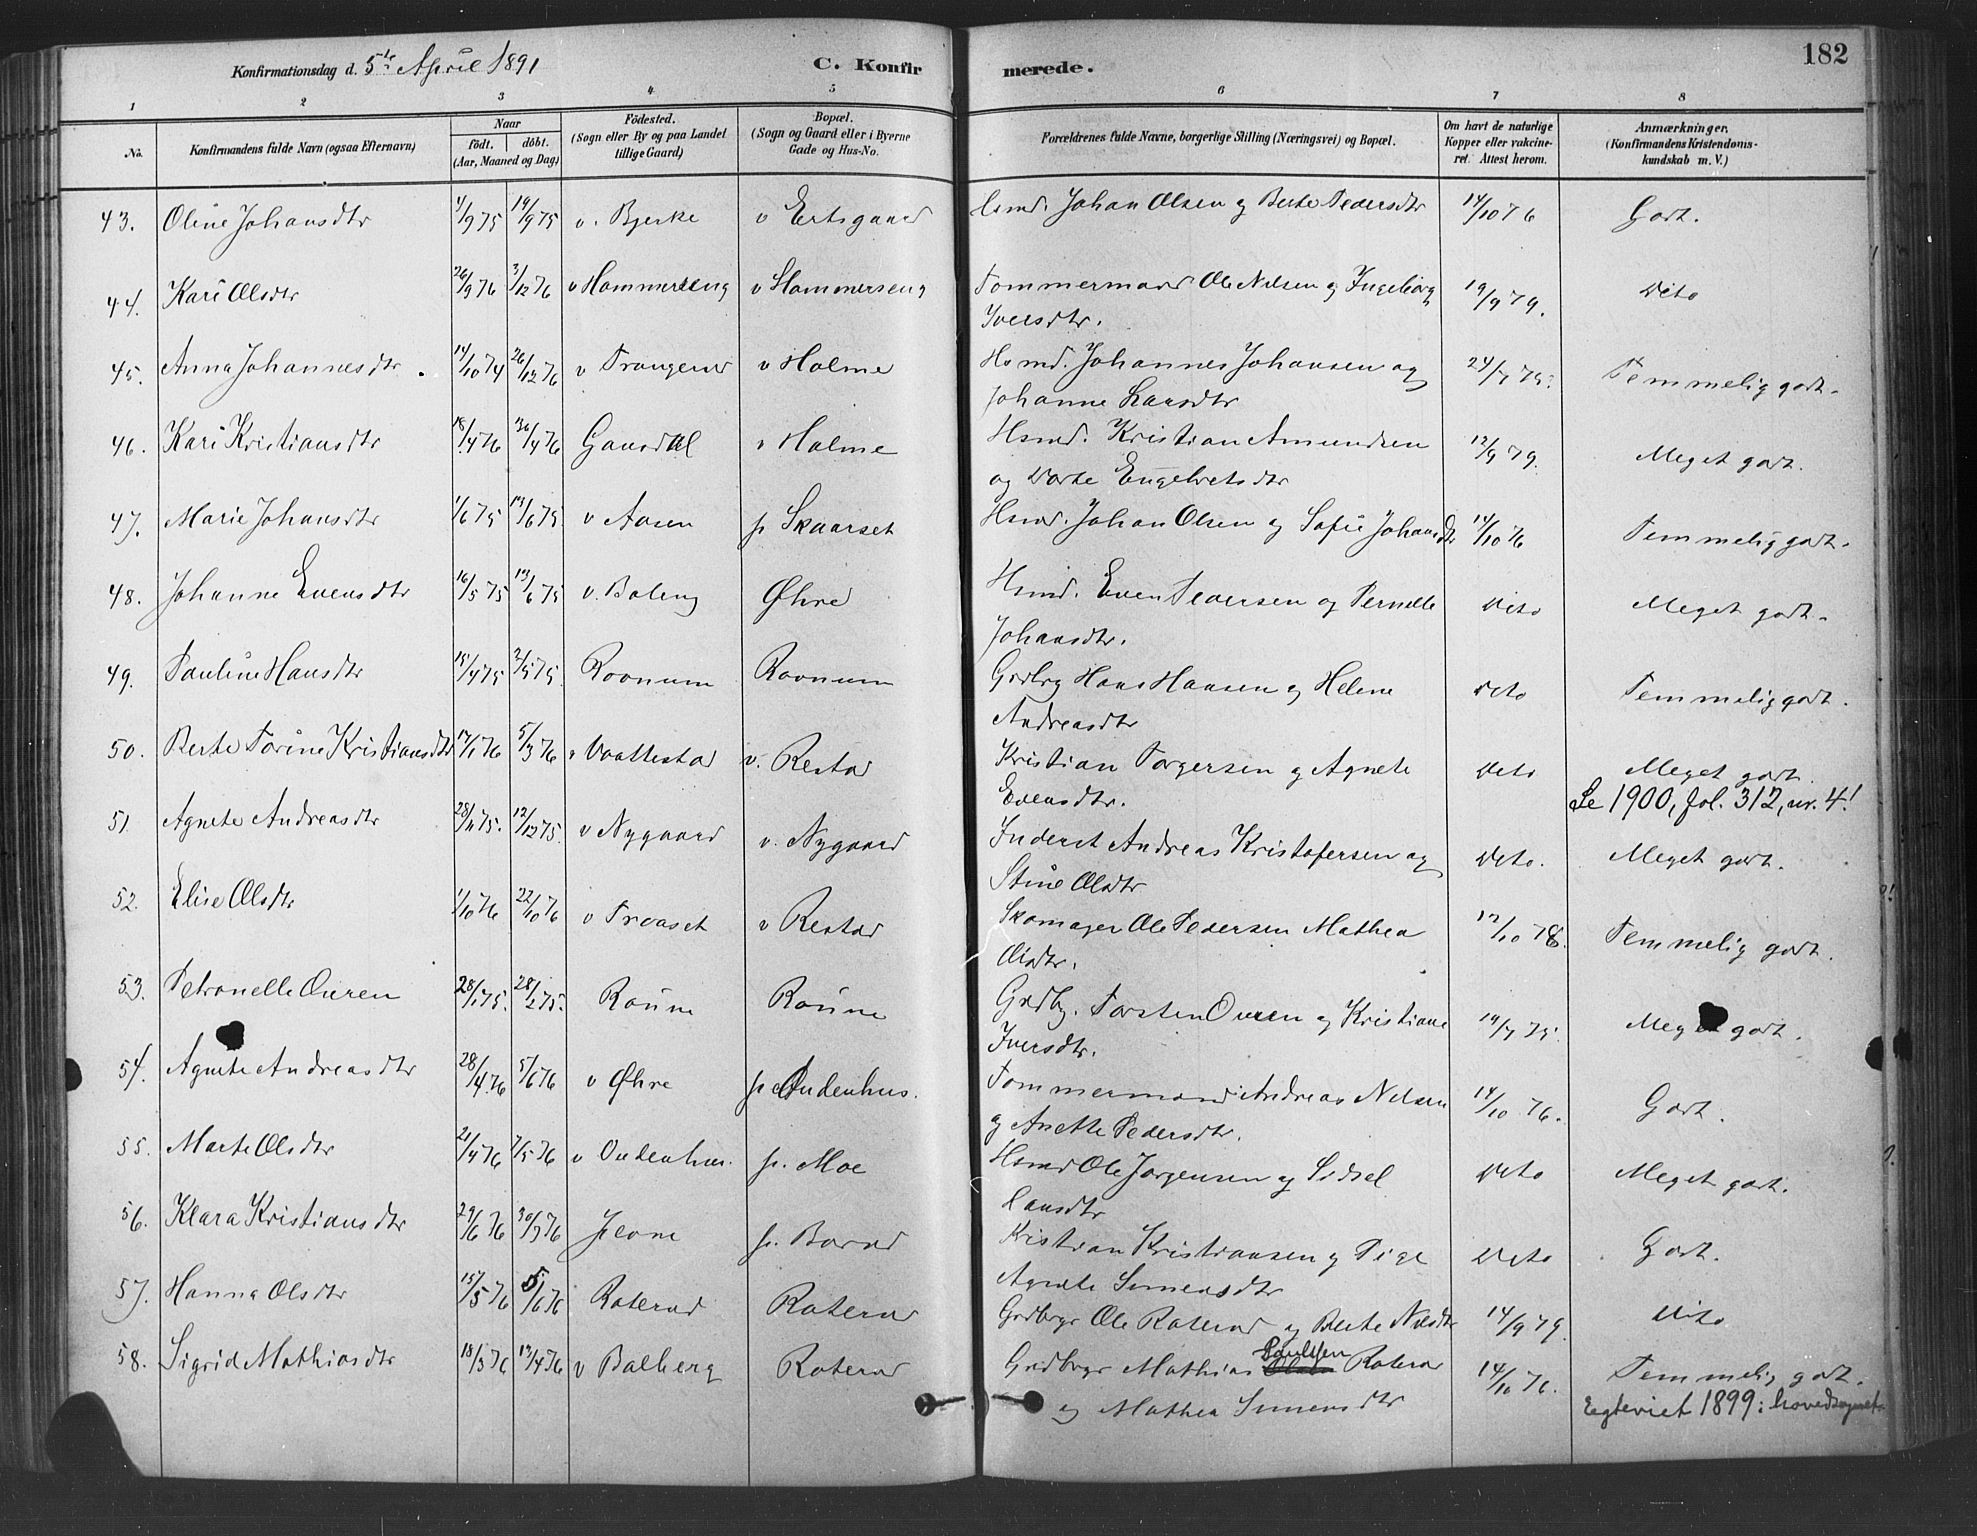 Konfirmationsdag d. 5te April 1891 C. Konfirmerede. 182
1 2 3 4 5 6 7 8
No. Konfirmandens fulde Navn (ogsaa Efternavn) Naar født. døbt. (Aar, Maaned og Dag) Fødested. (Sogn eller By og paa Landet tillige Gaard) Bopæl. (Sogn og Gaard eller i Byerne Gade og Hus-No. Forældrenes fulde Navne, borgerlige Stilling (Næringsvei) og Bopæl. Om havt de naturlige Kopper eller vakcineret. Attest herom. Anmærkninger. (Konfirmandens Kristendomskundskab m. V.)
43. Oline Johansdtr 1/9 75 19/9 75 v. Bjerke v Ertsgaard Hsmd. Johan Olsen og Berte Pedersdtr 14/10 76 Godt.
44. Kari Olsdtr 26/9 76 3/12 76 v Hammerseng v Hammerseng Tømmermand Ole Nilsen og Ingeborg 19/9 79. Dito
Iversdtr.
45. Anna Johannesdtr. 14/10 74 26/12 76 v Trangerud v Holme Hsmd. Johannes Johansen og 24/7 75. Temmelig godt.
Johanne Larsdtr
46. Kari Kristiansdtr 18/4 76 30/4 76 Gausdal v Holme Hsmd. Kristian Amundsen 12/9 79. Meget godt.
og Dorte Engebretsdtr
47. Marie Johansdtr 1/6 75 13/6 75 v Aasen p Skaarset Hsmd. Johan Olsen og Sofie Johansdtr 14/10 76 Temmelig godt.
48. Johanne Evensdtr 16/5 75 13/6 75 v. Baleng Øhre Hsmd. Even Pedersen og Pernille Dito Meget godt.
Johansdtr.
49. Pauline Hansdtr 15/4 75 2/5 75. Rovnum Rovnum Grdbrg Hans Hansen og Helene Dito Temmelig godt.
Andreasdtr
50. Berte Torine Kristiansdtr 17/1 76 5/3 76 v Vaattestad v. Restad Kristian Torgersen og Agnete Dito Meget godt.
Evensdtr. Se 1900, fol. 312, nr. 4!
51. Agnete Andreasdtr 28/11 75. 12/12 75. v Nygaard v. Nygaard Inderst Andreas Kristofersen og Dito. Meget godt.
Stine Olsdtr
52. Elise Olsdtr 1/10 76 22/10 76 v Troaset v Restad Skomager Ole Pedersen Mathea 17/10 78. Temmelig godt.
Olsdtr.
53. Petronelle Ouren 28/1 75. 28/2 75. Roüne Roüne Grdbg. Torsten Ouren og Kristiane 14/7 75. Meget godt.
Iversdtr.
54. Agnete Andreasdtr 28/4 76 5/6 76 v Øhre p Oudenhus. Tømmermand Andreas Nilsen 14/10 76. Godt.
og Anette Pedersdtr.
55. Marte Olsdtr 21/4 76 7/5 76 v Oudenhus. p. Moe Hsmd Ole Jørgensen og Sidsel Dito Meget godt.
Hansdtr
56. Klara Kristiansdtr 29/6 76 30/7 76 p. Kristian Kristiansen og Pige Dito Godt.
Agnete Simensdtr
57. Hanna Olsdtr 15/5 76 5/6 76 Roterud Roterud Grdbrgr Ole Roterud og Berte Nilsdtr 14/9 79. Dito
58. Sigrid Mathiasdtr 18/3 76 17/4 76 v Balberg Roterud Grdbrgr Mathias Paulsen Roterud 14/10 76. Temmelig godt.
og Mathea Simensdtr Egteviet 1899 i hovedsognet.